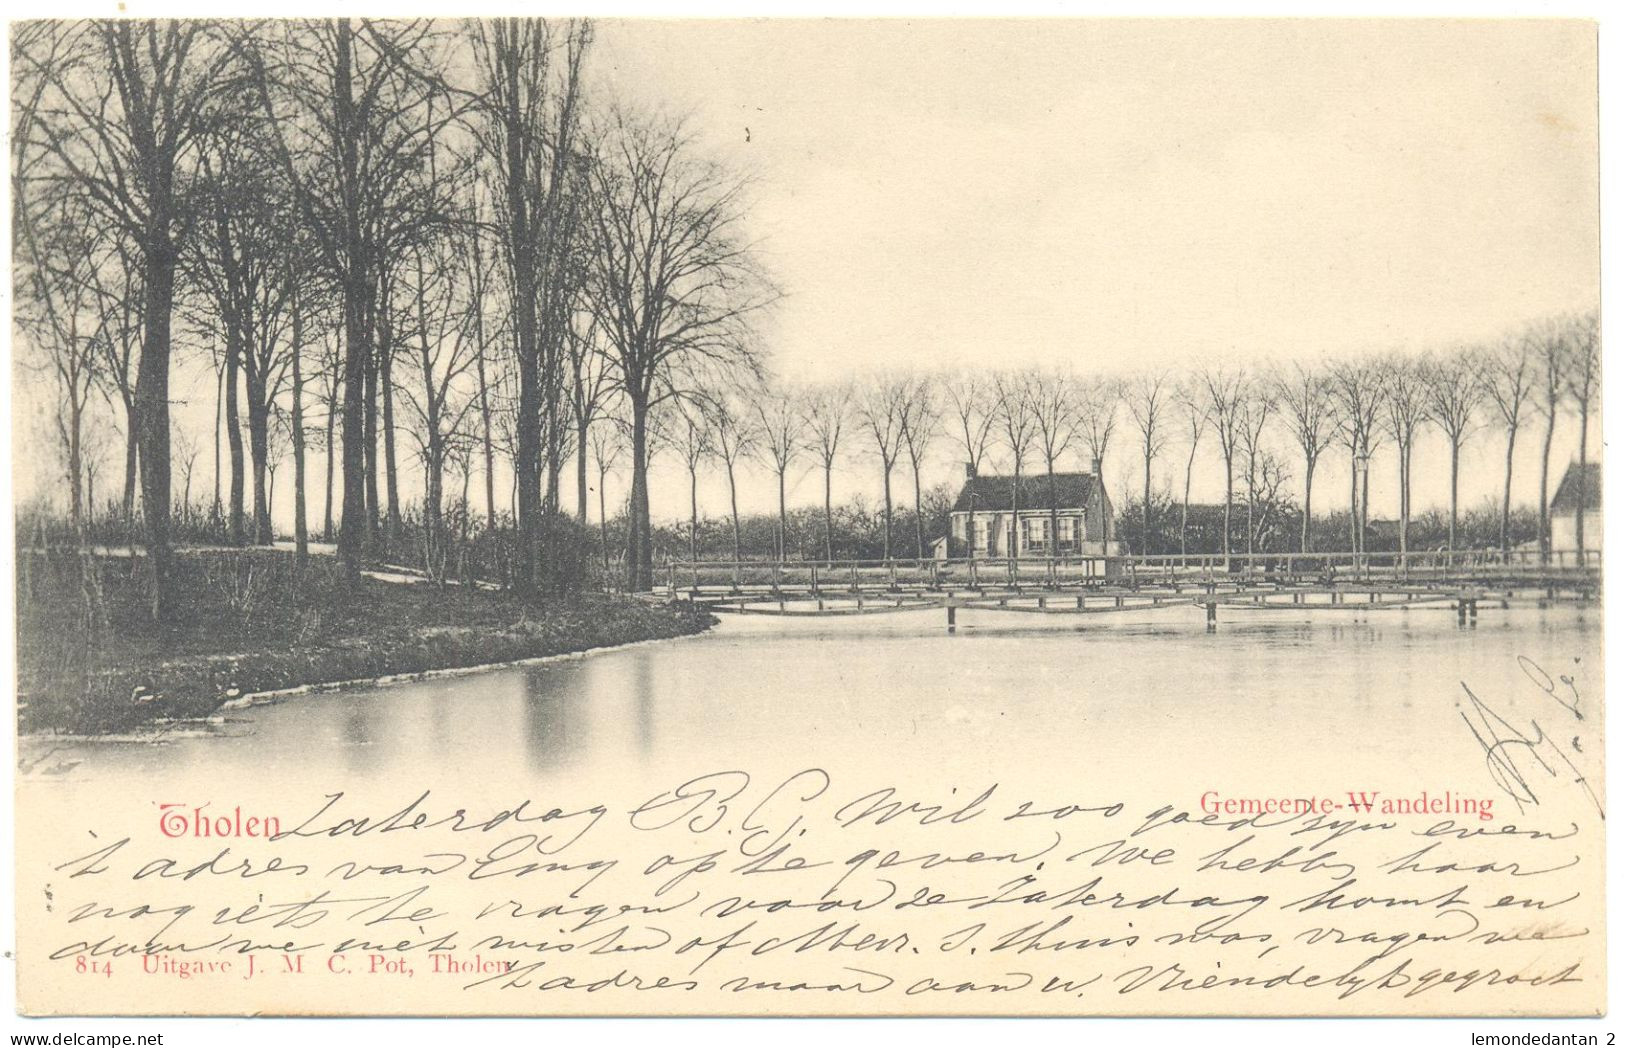 Gemeente-Wandeling
Tholen Zaterdag B. G. Wil zoo goed zijn even
't adres van Emy op te geven. We hebbe haar
nog iets te vragen voor ze Zaterdag komt en
daar we niet wisten of Mevr. S. thuis was, vragen we
814 Uitgave J. M. C. Pot, Tholen
't adres maar aan u. Vriendelijk gegroet
lemondedantan 2